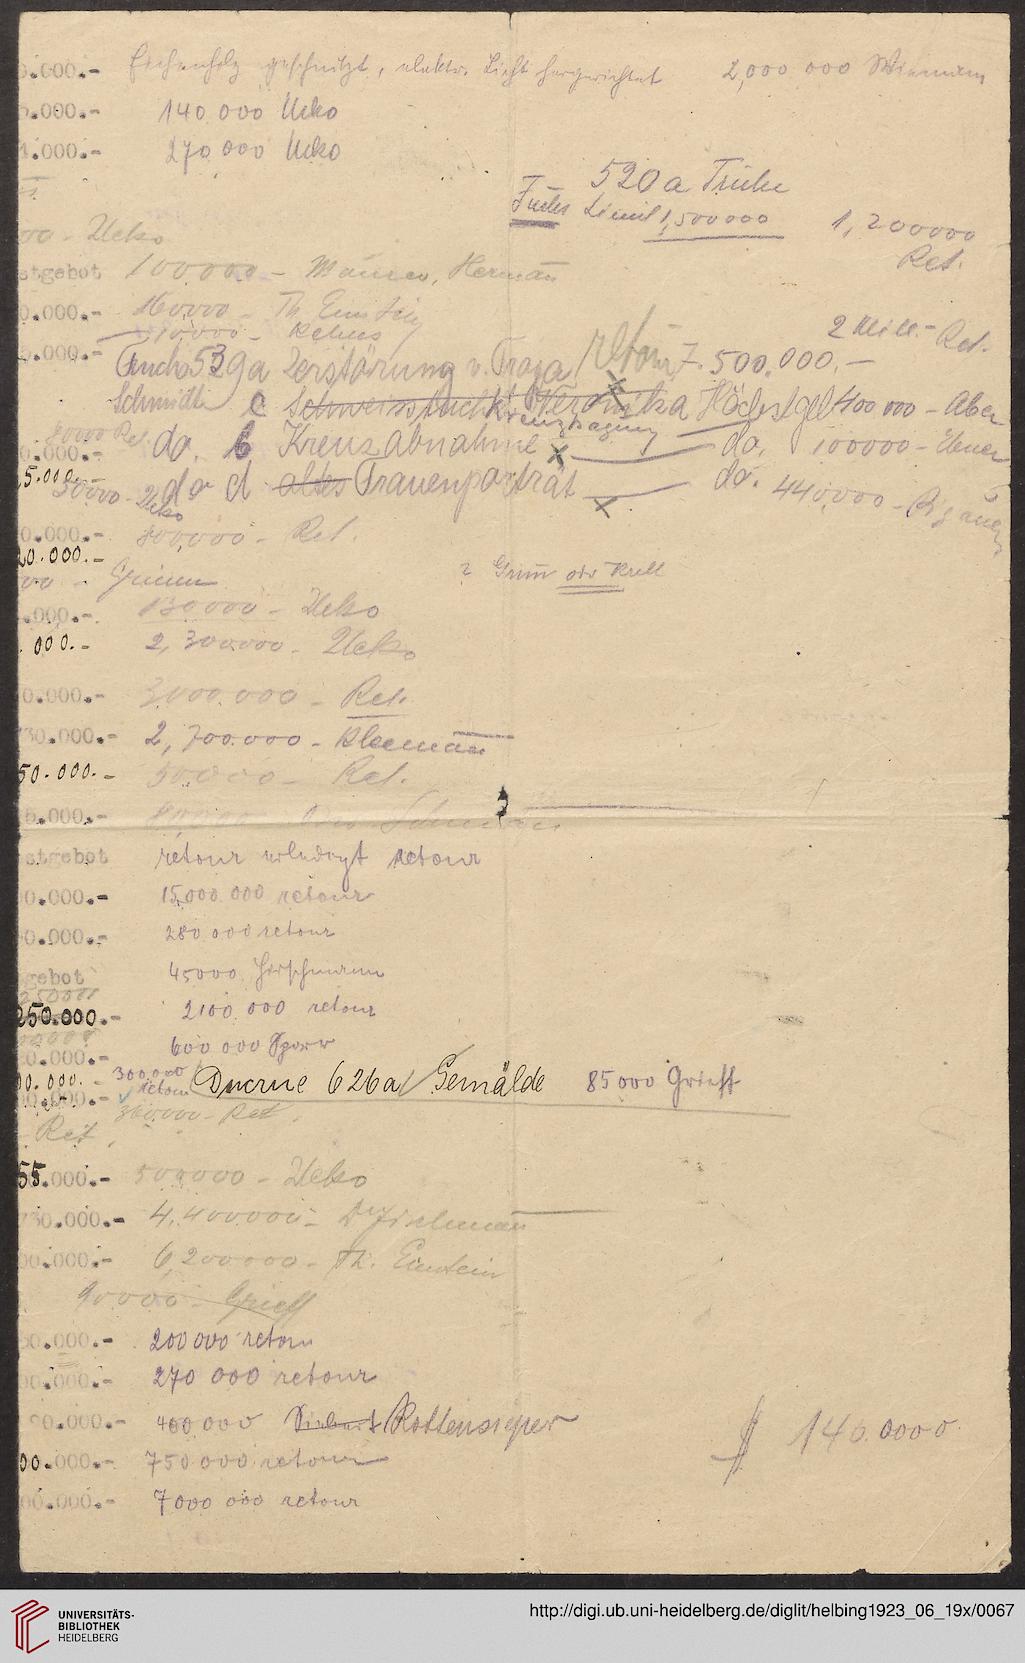 .000.- Eichenholz geschnitzt, elektr. Licht hergerichtet 2,000 000
.000.- 140 000 Ueko
.000.- 270 000 Ueko
520a Truhe
Fuchs Limit 1,500000 1,200000
Ret.
00 - Ueko
stgebot 100000 - Maurer, Hermañ
0.000.- 160000 - Th. Einstein
110000 -
2 Mill. - Ret.
.000.- 539a Zerstörung v. Troja / retour 7.500.000.-
Schmidt c Schweisstuch Veronika Höchstgeb 400 000 -
Kreuztragung
80000 Ret.
0.000.- do. b Kreuzabnahme do. 100000 -
5.000.-
30000 - Ueko do d altes Frauenporträt do. 440000 -
0.000.- 800000 - Ret.
20.000.-
00 - Grimm ? Grim̄ odr Krell
.000.- 130000 - Ueko
.000.- 2,300000 - Ueko
0.000.- 3000.000 - Ret.
30.000.- 2,700.000 - Kleemañ
50.000.- 50000 - Ret.
5.000.-
stgebot retour erledigt retour
0.000.- 15,000.000 retour
0.000.- 280 000 retour
gebot 45000 Hirschmann
250000
250.000.- 2100 000 retour
0.000.- 600 000 Sporr
00.000.- 300,000 retour Ducrue 626a/ Gemälde 85000 Grieff
360.000 - Ret.
- Ret.
55.000.- 500000 - Ueko
730.000.- 4,400000 - Dr Fischmañ
00.000.- 6,200000 - Th. Einstein
90000 - Grieff
00.000.- 200 000 retour
00.000.- 270 000 retour
00.000.- 400 000 Rottensieper 140.0000
00.000.- 750 000 retour
00.000.- 7000 000 retour
UNIVERSITÄTS-
BIBLIOTHEK
HEIDELBERG
http://digi.ub.uni-heidelberg.de/diglit/helbing1923_06_19x/0067